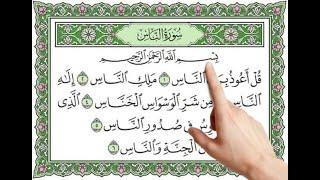 سُورَةُ النَّاسِ
بِسْمِ اللَّهِ الرَّحْمَٰنِ الرَّحِيمِ
قُلْ أَعُوذُ النَّاسِ ١ مَلِكِ النَّاسِ ٢ إِلَٰهِ
النَّاسِ مِن شَرِّ الْوَسْوَاسِ الْخَنَّاسِ ٤ الَّذِي
فِي صُدُورِ النَّاسِ ٥
الْجِنَّةِ وَالنَّاسِ ٦